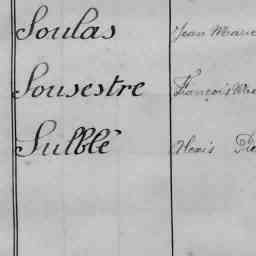 Soulas Jean Marie
Sousestre François Ma
Sulblé Pie